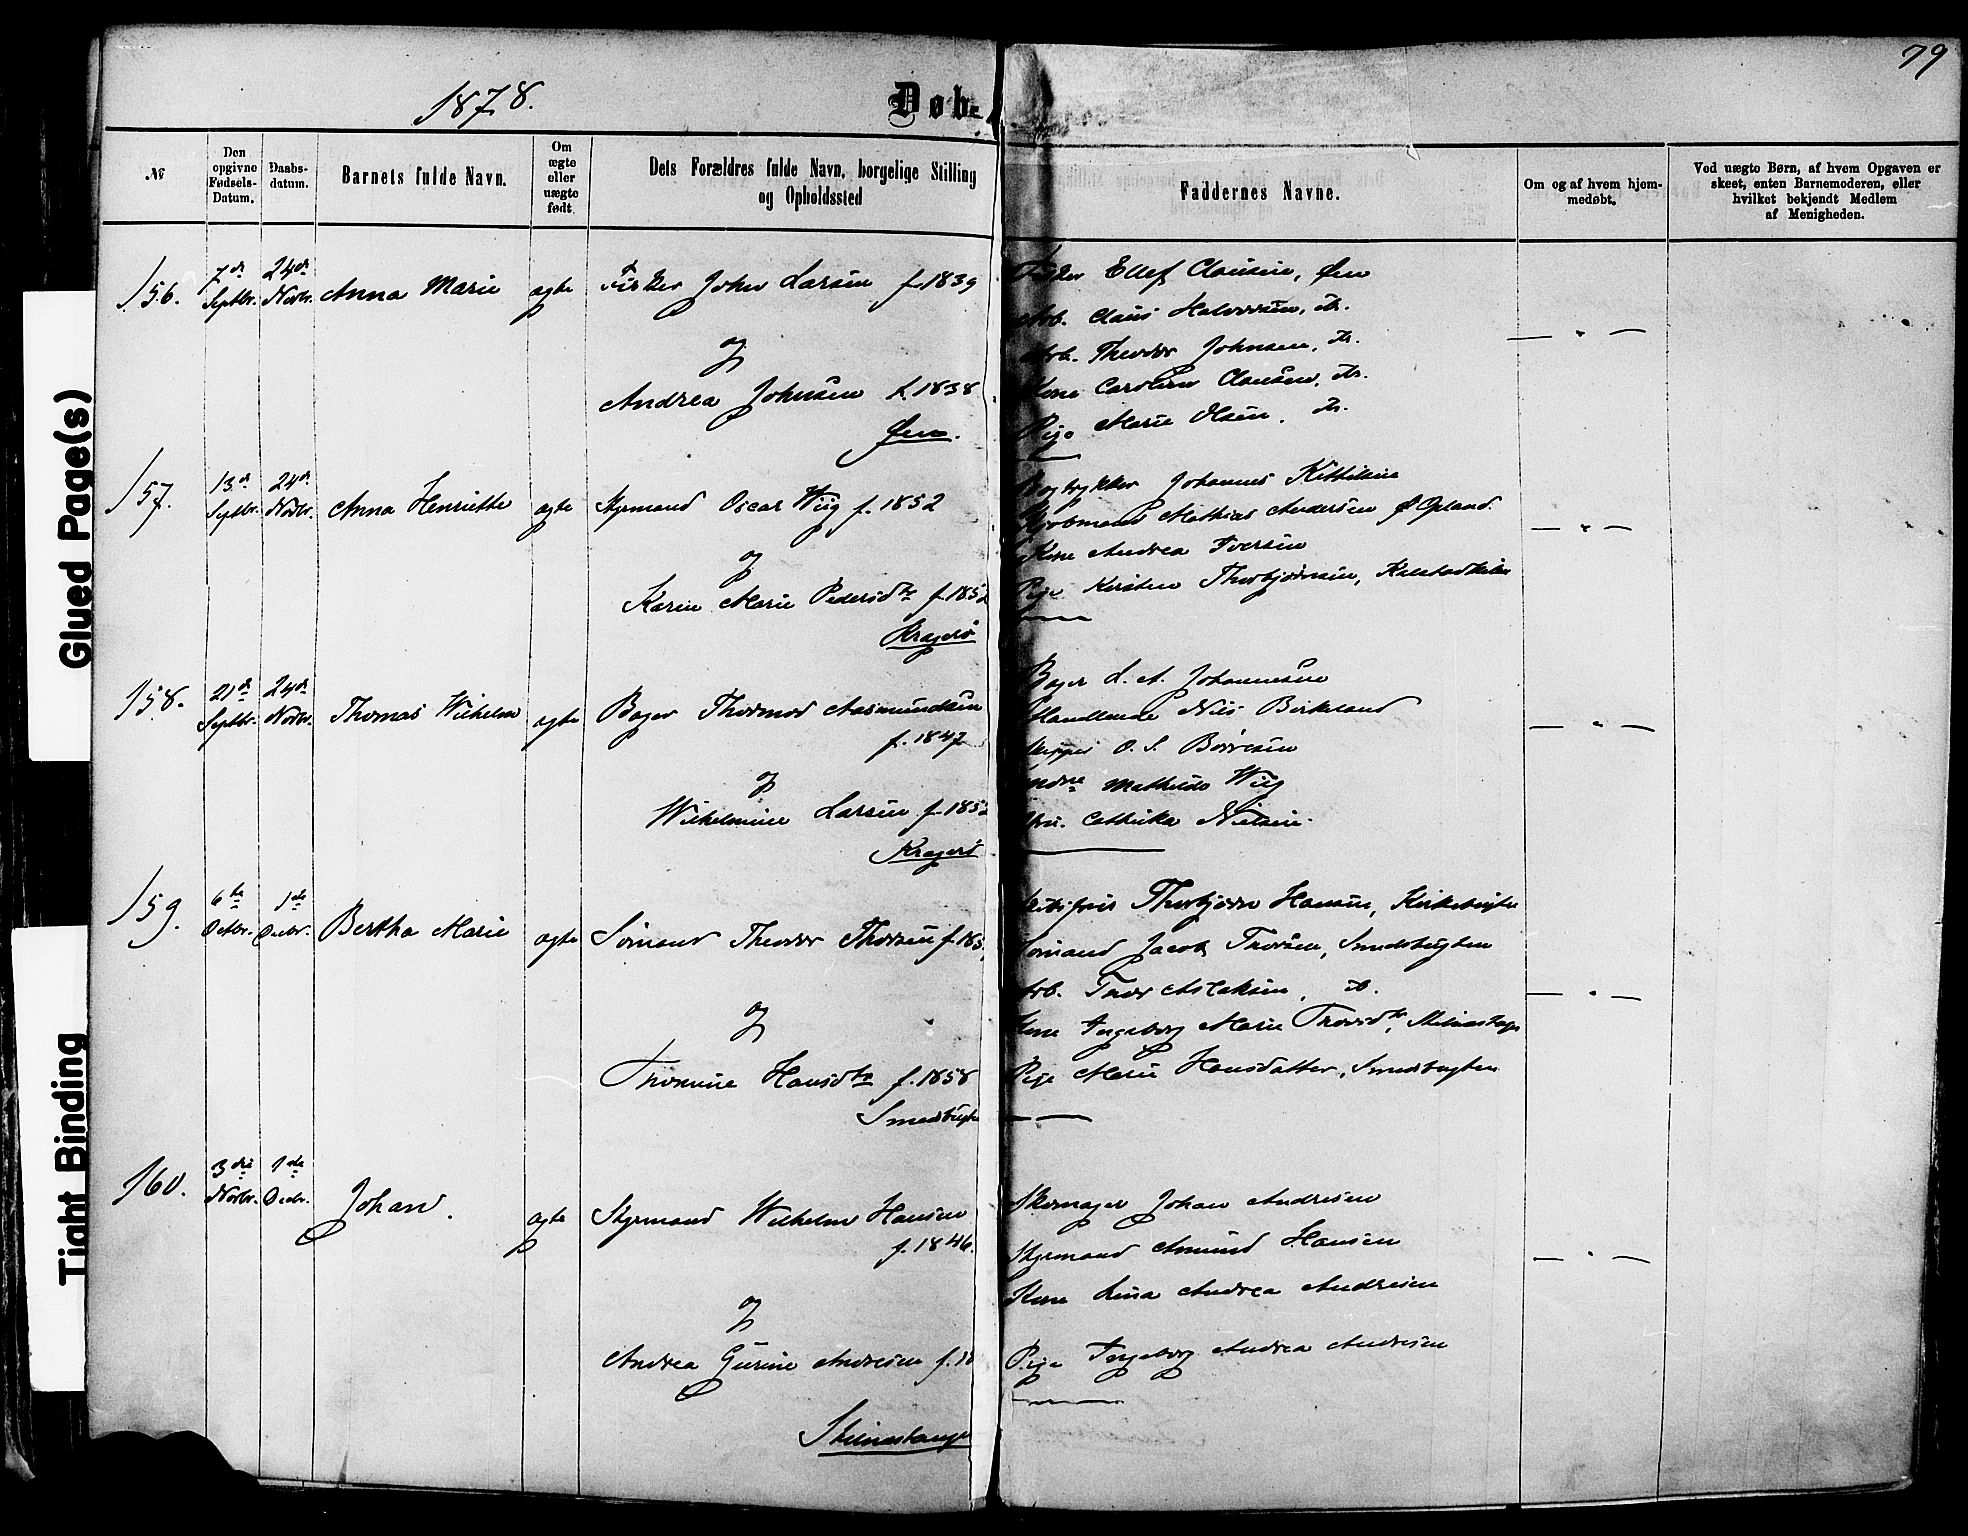 1878.
Døb-
79
№
Den opgivne Fødsels-Datum.
Daabs-datum.
Barnets fulde Navn.
Om ægte eller uægte født.
Dets Forældres fulde Navn, borgelige Stilling og Opholdssted
Faddernes Navne.
Om og af hvem hjem-medøbt.
Ved uægte Børn, af hvem Opgaven er skeet, enten Barnemoderen, eller hvilket bekjendt Medlem af Menigheden.
156.
7de Septbr.
24de Novbr.
Anna Marie
ægte
Fisker John Larsen f. 1839
og
Andrea Johnsen f. 1838
Øen.
Fisker Ellef Clausen, Øen
Arb. Claus Halvorsen, do.
Arb. Theodor Johnsen, do.
Kone Caroline Clausen, do.
Pige Marie Olsen. do.
— " —
157.
13de Septbr.
24de Novbr.
Anna Henriette
ægte
Styrmand Oscar Wiig f. 1852
og
Karen Marie Pedersdtr f. 1852
Kragerø
Bogtrykker Johannes Kittilsen
Kjøbmand Mathias Andersen
Kone Andrea Iversen
Pige Kirstine Thorbjørnsen, Kalstadkilen
— " —
158.
21de Septbr.
24de Novbr.
Thomas Wilhelm
ægte
Bager Thormod Aasmundsen
f. 1847
og
Wilhelmine Larsen f. 185
Kragerø
Bager L. A. Johannesen
Handlende Nils Birkeland
Skipper O. S. Børresen
Mathilde Wiig
Cathinka Nielsen.
— " —
159.
6te Octbr.
1ste Decbr.
Bertha Marie
ægte
Sømand Theodor Thorsen f. 185
og
Thomine Hansdtr f. 1858
Smedsbugten
Thorbjørn Hansen, Kirkebugten
Sømand Jacob Thorsen, Smedsbugten
Arb. Thor Aslaksen, do.
Kone Ingeborg Marie Thorsdtr,
Pige Marie Hansdatter, Smedsbugten
— " —
160.
3die Novbr.
1ste Decbr.
Johan.
ægte
Styrmand Wilhelm Hansen
f. 1846.
og
Andrea Gurine Andresen f. 18
Skomager Johan Andresen
Styrmand Amund Hansen
Kone Lina Andrea Andresen
Pige Ingeborg Andrea Andresen
— " —
Glued Page(s)
Tight Binding